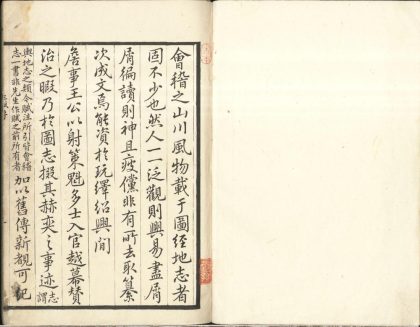 會稽之山川風物載于圖經地志者
固不少也然人一一泛觀則興易盡屑
屑徧讀則神且疲儻非有所去取纂
次成文焉能資於玩繹紹興間
詹事王公以射策魁多士入官越幕贊
治之暇乃於圖志掇其赫奕之事迹謂志
輿地志之類今賦注所引皆會稽
志一書非先生作賦之前所有者
加以舊傳新覩可紀